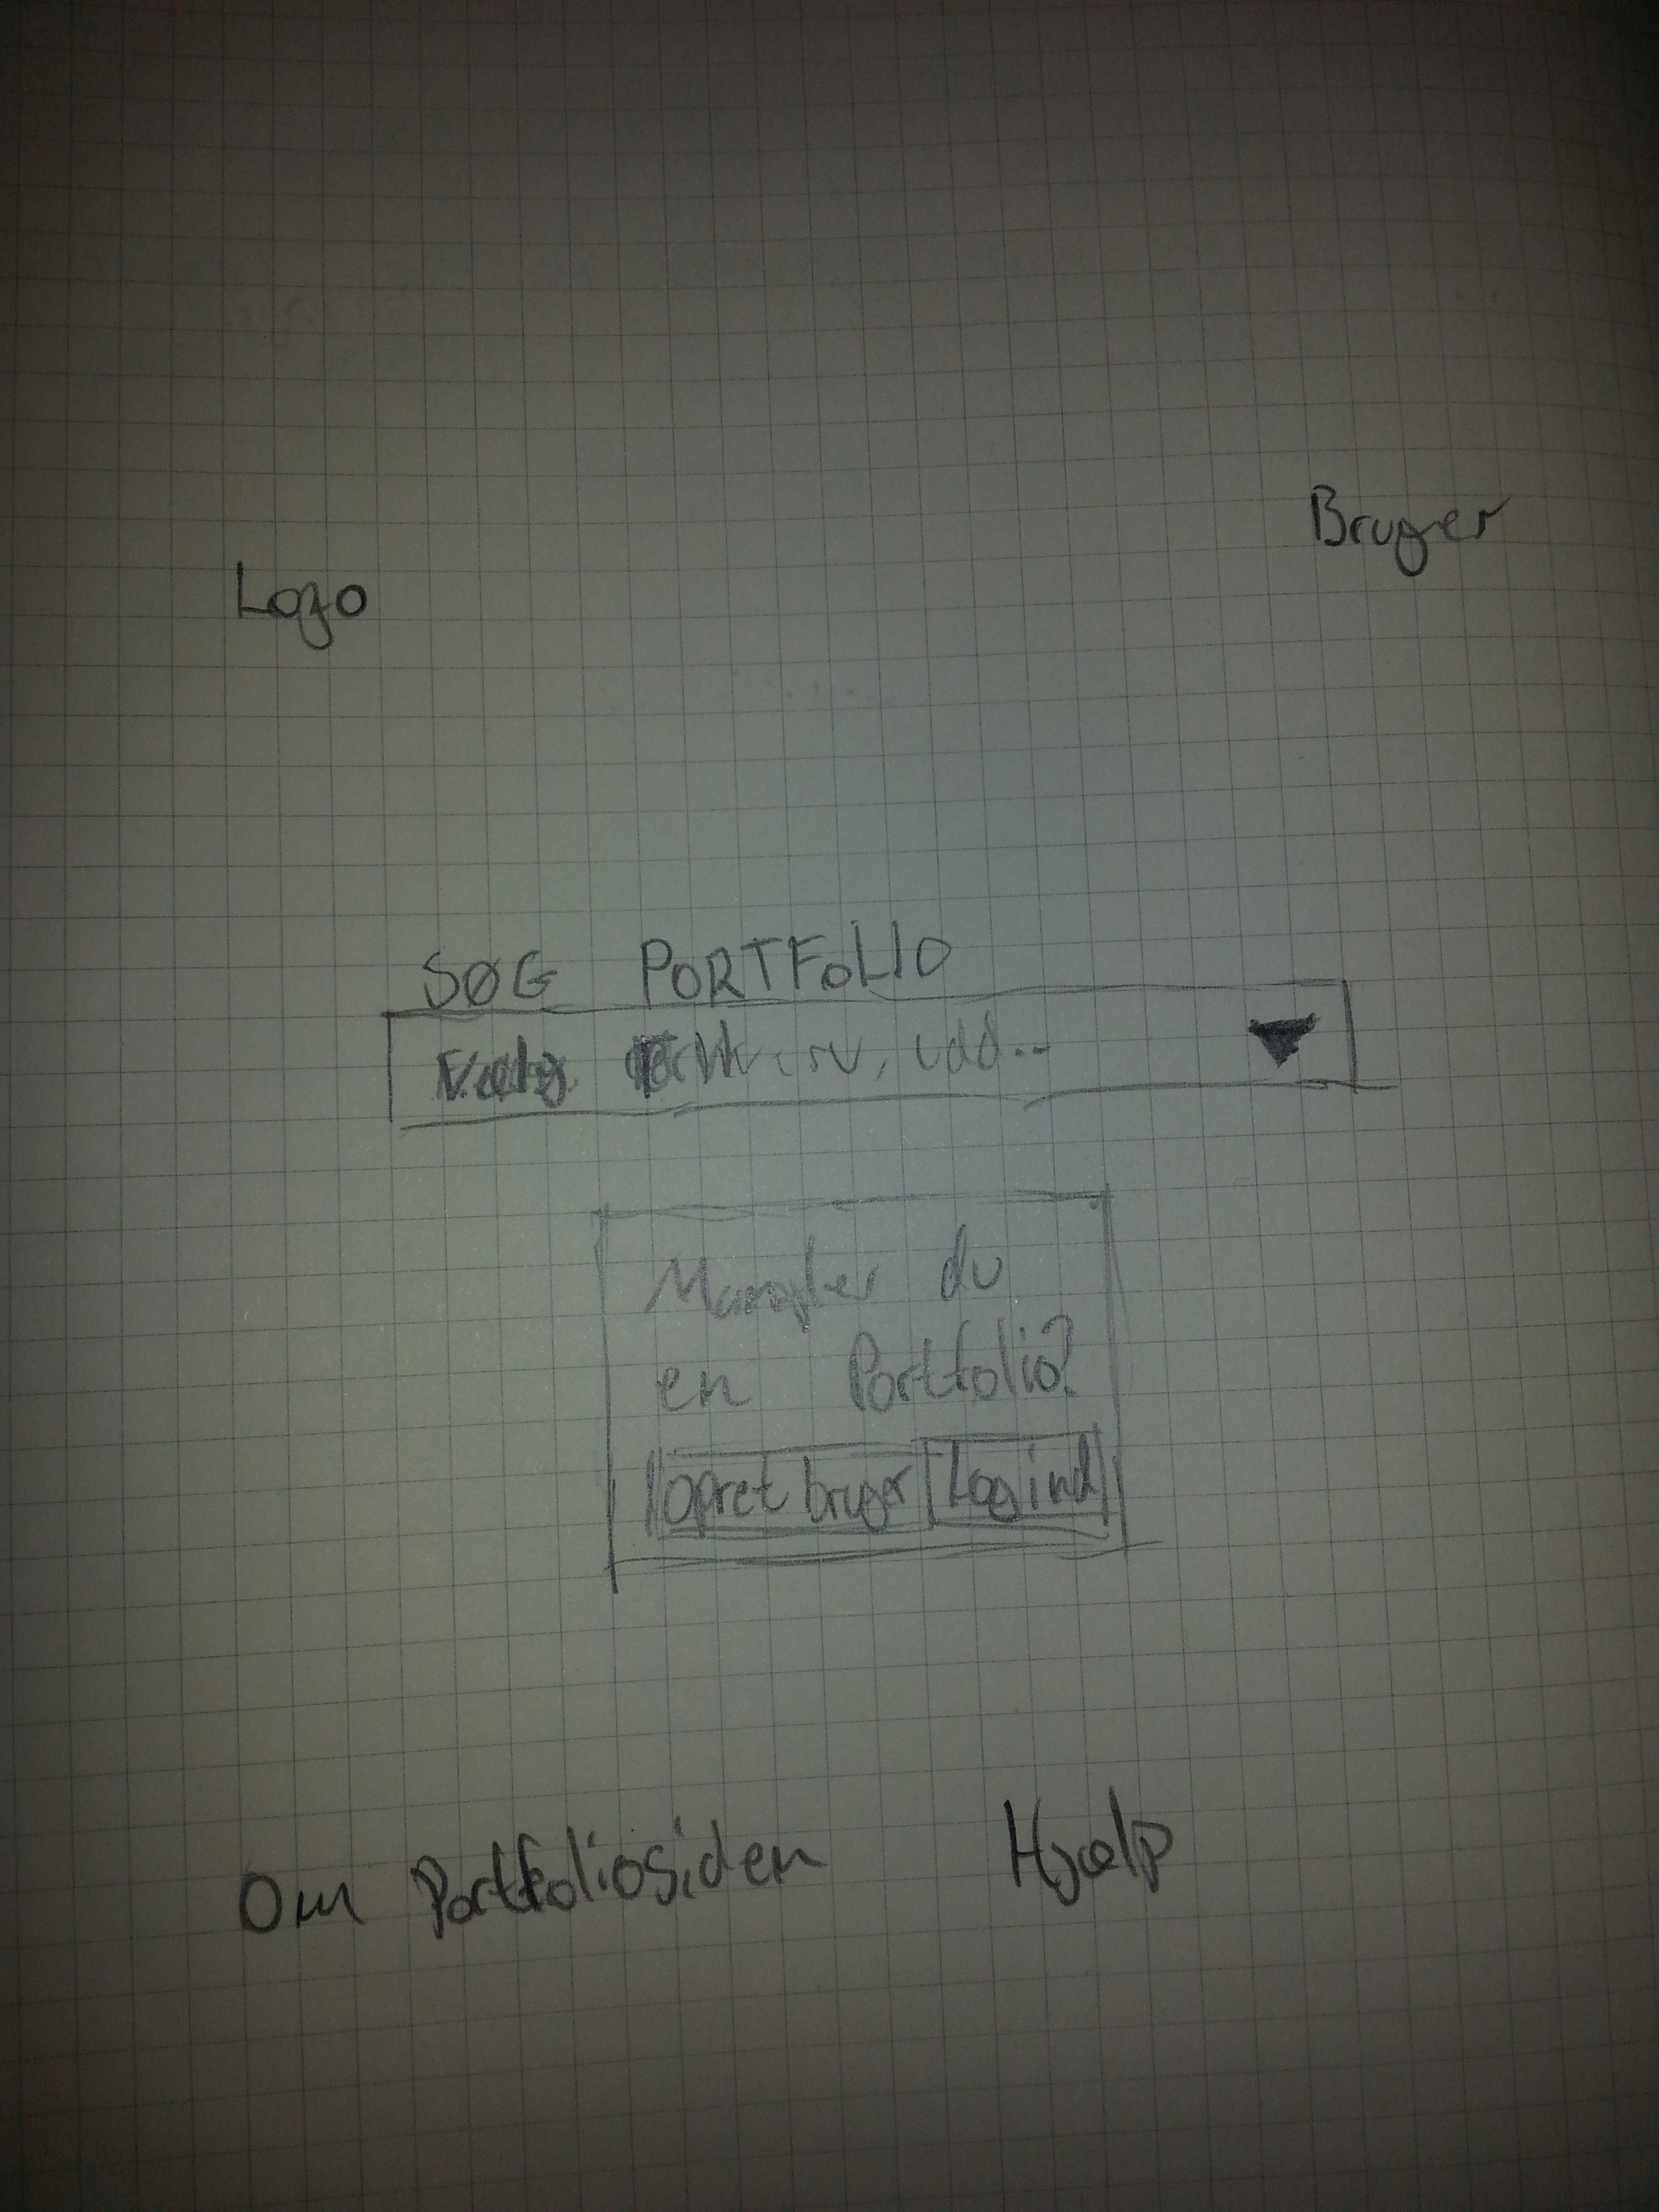 Logo
Bruger
SØG PORTFOLIO
Mangler du
en Portfolio?
opret bruger Log ind
Om portfoliosiden Hjælp